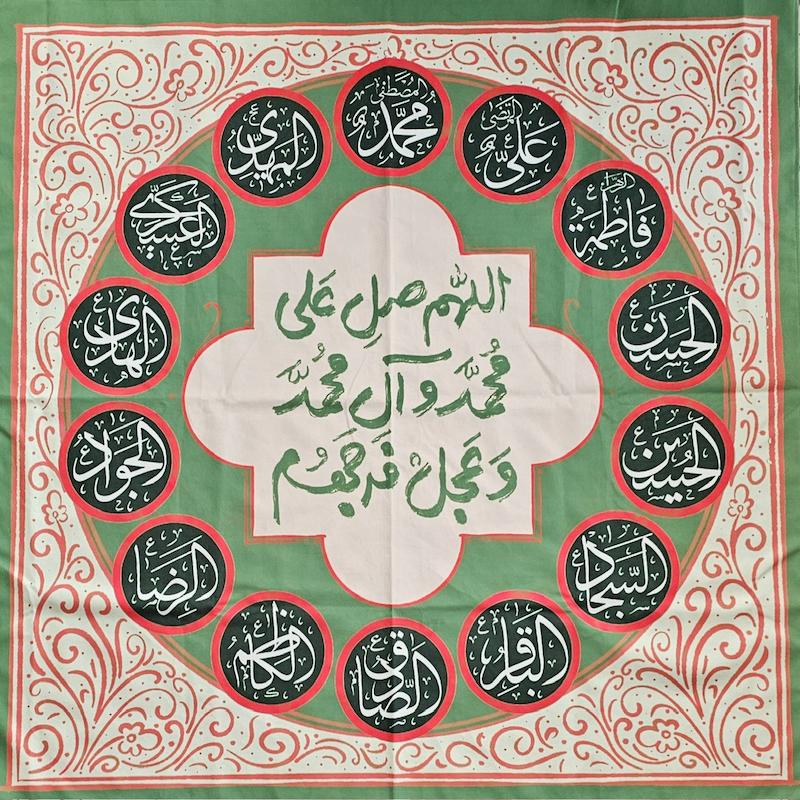 اللهم صل على
محمد وآل محمد
وعجل فرجهم
محمد المصطفى
علي المرتضى
فاطمة الزهراء
الحسن
الحسين
السجاد
الباقر
الصادق
الكاظم
الرضا
الجواد
الهادي
العسكري
المهدي